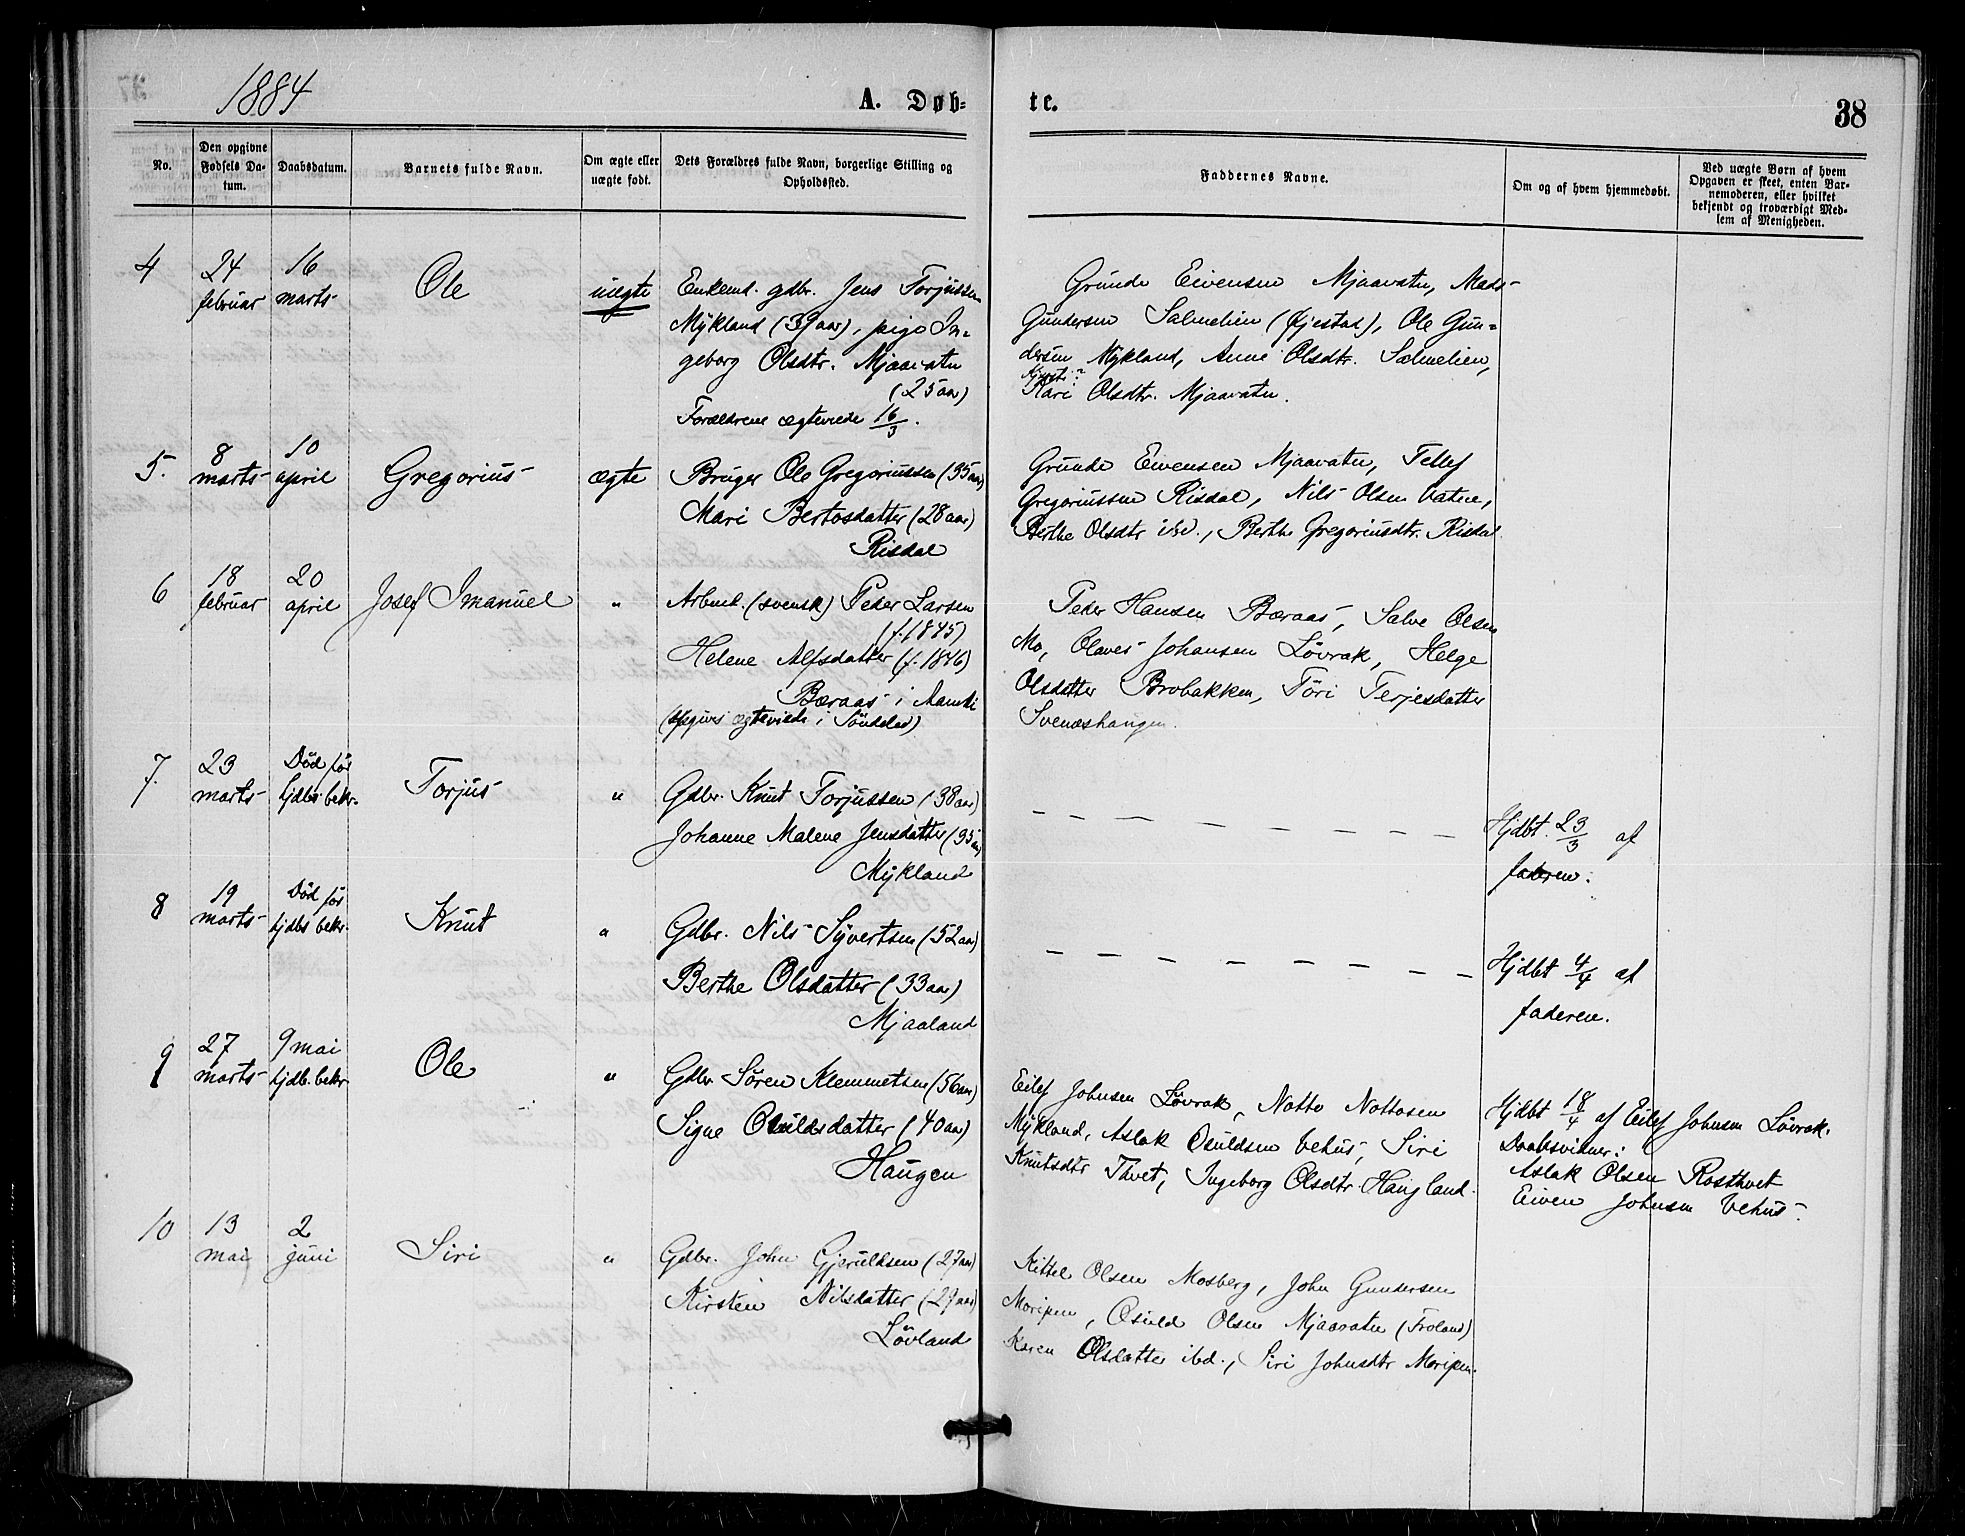 1884
A. Døb-
te.
38
No.
Den opgivne Fødsels Da-tum.
Daabsdatum.
Barnets fulde Navn.
Om ægte eller uægte født.
Dets Forældres fulde Navn, borgerlige Stilling og Opholdssted.
Faddernes Navne.
Om og af hvem hjemmedøbt.
Ved uægte Børn af hvem Opgaven er skeet, enten Bar-nemoderen, eller hvilket bekjendt og troværdigt Med-lem af Menigheden.
4
24 februar
16 marts
Ole
uægte
Enkemd. gdbr. Jens Torjussen
Mykland (39 aar), pige In-
geborg Olsdtr. Mjaavatn
(25 aar)
Forældrene ægteviede 16/3.
Gunde Eivensen Mjaavatn, Mads
Gundersen Salmelien (Øjestad), Ole Gun-
dersen Mykland, Anne Olsdtr. Salmelien,
Kari Olsdtr. Mjaavatn.
5.
8 marts
10 april
Gregorius
ægte
Bruger Ole Gregoriussen (35 aar)
Mari Bertosdatter (28 aar)
Risdal
Grunde Eivensen Mjaavatn, Tellef
Gregoriussen Risdal, Nils Olsen Vatne,
Berthe Olsdtr ibd., Berthe Gregoriusdtr. Risdal
6
18 februar
20 april
Josef Imanuel
"
Arbmd. (svensk) Peder Larsen
(f. 1845)
Helene Alfsdatter (f. 1846)
Bæraas i Aamli
(opgives ægteviede i Söndeled)
Peder Hansen Bæraas, Salve Olsen
Mo, Olaves Johansen Lövrak, Helge
Olsdatter Brobakken, Töri Terjesdatter
Svenæshaugen.
7.
23 marts
Död før hjdbs. bekr.
Torjus
"
Gdbr. Knut Torjussen (38 aar)
Johanne Malene Jensdatter (35 aar)
Mykland
Hjdbt. 23/3 af
faderen.
8
19 marts
Död før hjdbs bekr.
Knut
"
Gdbr. Nils Syvertsen (52 aar)
Berthe Olsdatter (33 aar)
Mjaaland
Hjdbt 4/4 af
faderen.
9
27 marts
9 mai hjdb. bekr.
Ole
"
Gdbr Sören Klemmetsen (56 aar)
Signe Osuldsdatter (40 aar)
Haugen
Eilef Johnsen Lövrak, Notto Nottosen
Mykland, Aslak Osuldsen Vehus, Siri
Knutsdtr Thvet, Ingeborg Olsdtr. Haugland.
Hjdbt 18/4 af Eilef Johnsen Lövrak.
Daabsvidner:
Aslak Olsen Rosthvet
Eiven Johnsen Vehus.
10
13 mai
2 juni
Siri
"
Gdbr. John Gjeruldsen (27 aar)
Kirsten Nilsdatter (29 aar)
Lövland
Kittel Olsen Mosberg, John Gundersen
Moripen, Osuld Olsen Mjaavatn (Froland)
Karen Olsdatter ibd., Siri Johnsdtr Moripen.